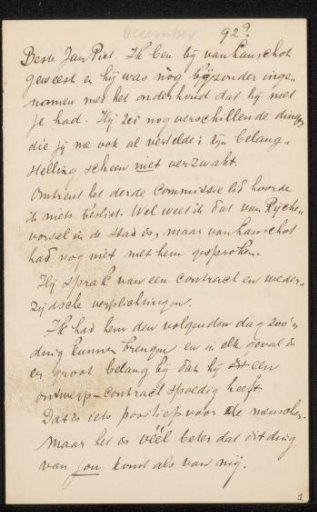 December 92?
Beste Jan Piet. Ik ben bij van Kanschot
geweest en hij was nòg bijzonder inge-
nomen met het onderhoud dat hij met
je had. Hij zei nog verschillende dingen
die jij me ook al vertelde: zijn belang-
stelling scheen niet verzwakt.
Omtrent het derde commissie lid hoorde
ik niets beslist. Wel weet ik dat van Ryche-
vorsel in de stad is, maar van Kanschot
had nog niet met hem gesproken.
Hij sprak van een contract en weder-
zijdsche verplichtingen.
Ik had hem den volgenden dag zoo'n
ding kunnen brengen en in elk geval is
er groot belang bij dat hij een
ontwerp-contract spoedig heeft.
Dat is iets positiefs voor de menschen.
Maar het is véél beter dat dit ding
van jou komt als van mij.
1